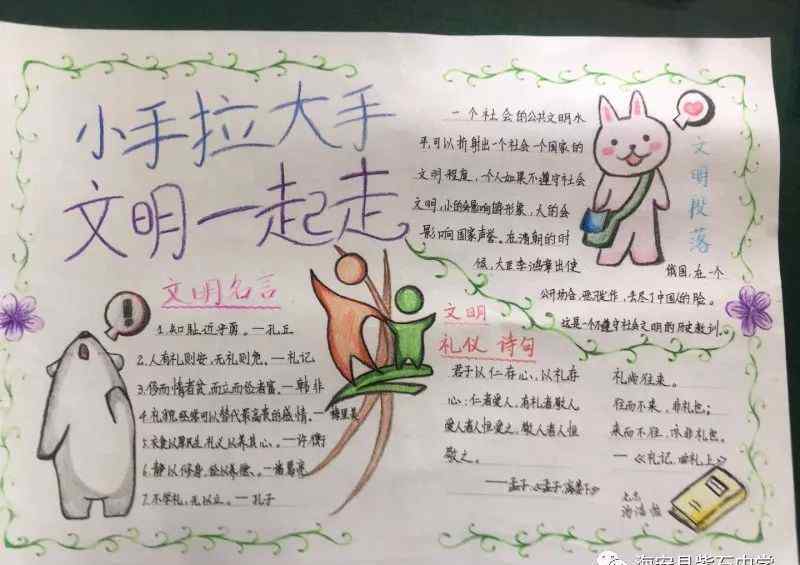 小手拉大手
文明一起走
文明名言
1.知耻近乎勇。—孔丘
2.人有礼则安,无礼则危。—礼记
3.侈而惰者贫,而力而俭者富。—韩非
4.礼貌经常可以替代最高贵的感情。—梅里美
5.衣食以厚民生,礼义以养其心。—许衡
6.静以修身,俭以养德。—诸葛亮
7.不学礼,无以立。—孔子
文明段落
一个社会的公共文明水
平,可以折射出一个社会一个国家的
文明程度,一个人如果不遵守社会
文明,小的会影响自身形象,大的会
影响国家声誉。在清朝的时
候,大臣李鸿章出使
俄国,在一个
公开场合,丢尽了中国人的脸。
这是一个不遵守社会文明的历史教训。
文明
礼仪 诗句
君子以仁存心,以礼存
心;仁者爱人,有礼者敬人
爱人者人恒爱之,敬人者人恒
敬之。
——孟子《孟子·离娄下》
礼尚往来。
往而不来,非礼也;
来而不往,亦非礼也。
—《礼记·曲礼上》
海安县紫石中学